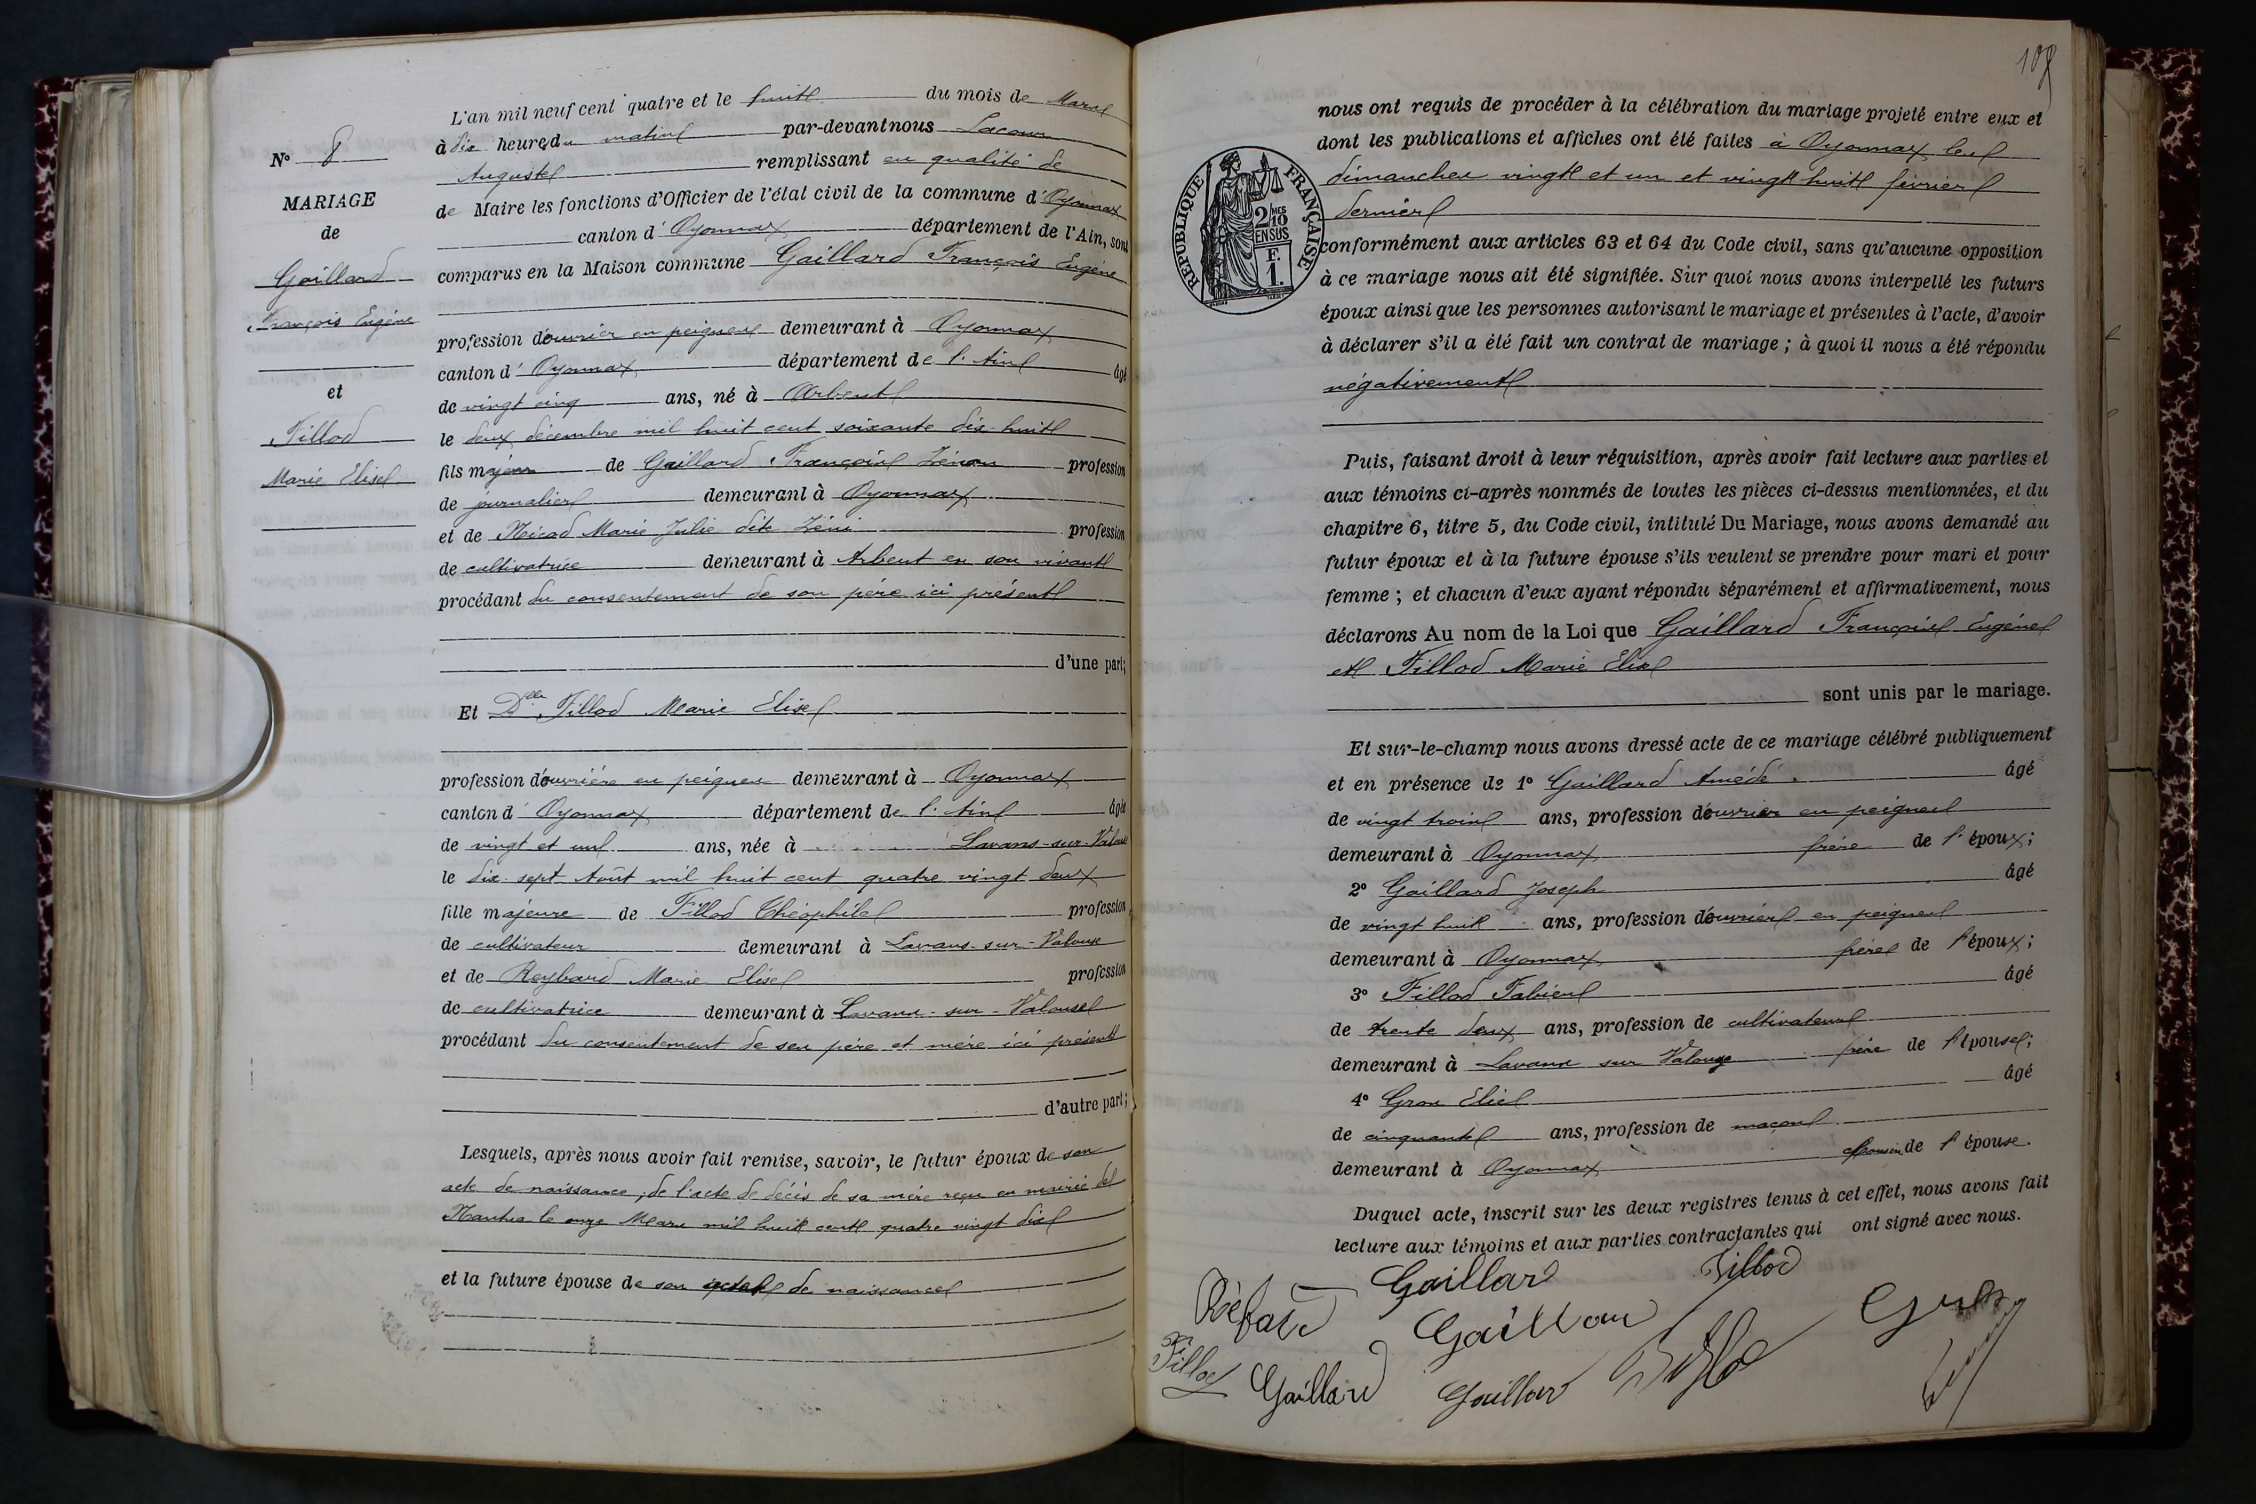 N° 8
MARIAGE
de
Gaillard
François Eugène
et
Fillod
Marie Elise
L'an mil neuf cent quatre et le huit du mois de Mars
à dix heures du matin par-devant nous Lacour
Auguste remplissant en qualité de
de Maire les fonctions d'Officier de l'état civil de la commune d'Oyonnax
canton d'Oyonnax département de l'Ain, sont
comparus en la Maison commune Gaillard François Eugène
profession d'ouvrier en peignes demeurant à Oyonnax
canton d'Oyonnax département de l'Ain âgé
de vingt cinq ans, né à Arbent
le deux décembre mil huit cent soixante dix huit
fils majeur de Gaillard François Zénon profession
de journalier demeurant à Oyonnax
et de Marie Julie dite profession
de cultivatrice demeurant à Arbent en son vivant
procédant du consentement de son père ici présent
d'une part;
Et Dlle Fillod Marie Elise
profession d'ouvrière en peignes demeurant à Oyonnax
canton d'Oyonnax département de l'Ain âgée
de vingt et un ans, née à Lavans-sur-Valouse
le dix-sept Août mil huit cent quatre vingt deux
fille majeure de Fillod Théophile profession
de cultivateur demeurant à Lavans-sur-Valouse
et de Reybard Marie Elise profession
de cultivatrice demeurant à Lavans-sur-Valouse
procédant du consentement de ses père et mère ici présents
d'autre part;
Lesquels, après nous avoir fait remise, savoir, le futur époux de son
acte de naissance, de l'acte de décès de sa mère reçu en mairie de
Nantua le onze Mars mil huit cent quatre vingt dix
et la future épouse de son acte de naissance
108
RÉPUBLIQUE FRANÇAISE
2/10 MES
EN SUS
F.
1.
nous ont requis de procéder à la célébration du mariage projeté entre eux et
dont les publications et affiches ont été faites à Oyonnax les
dimanches vingt et un et vingt huit février
dernier
conformément aux articles 63 et 64 du Code civil, sans qu'aucune opposition
à ce mariage nous ait été signifiée. Sur quoi nous avons interpellé les futurs
époux ainsi que les personnes autorisant le mariage et présentes à l'acte, d'avoir
à déclarer s'il a été fait un contrat de mariage; à quoi il nous a été répondu
négativement
Puis, faisant droit à leur réquisition, après avoir fait lecture aux parties et
aux témoins ci-après nommés de toutes les pièces ci-dessus mentionnées, et du
chapitre 6, titre 5, du Code civil, intitulé Du Mariage, nous avons demandé au
futur époux et à la future épouse s'ils veulent se prendre pour mari et pour
femme; et chacun d'eux ayant répondu séparément et affirmativement, nous
déclarons Au nom de la Loi que Gaillard François Eugène
et Fillod Marie Elise
sont unis par le mariage.
Et sur-le-champ nous avons dressé acte de ce mariage célébré publiquement
et en présence de 1° Gaillard Amédé âgé
de vingt trois ans, profession d'ouvrier en peignes
demeurant à Oyonnax frère de l'époux;
2° Gaillard Joseph âgé
de vingt huit ans, profession d'ouvrier en peignes
demeurant à Oyonnax frère de l'époux;
3° Fillod Fabien âgé
de trente deux ans, profession de cultivateur
demeurant à Lavans sur Valouse frère de l'épouse;
4° Gros Elie âgé
de cinquante ans, profession de maçon
demeurant à Oyonnax cousin de l'épouse.
Duquel acte, inscrit sur les deux registres tenus à cet effet, nous avons fait
lecture aux témoins et aux parties contractantes qui ont signé avec nous.
Gaillard Fillod
Gaillard
Fillod Gaillard Gaillard